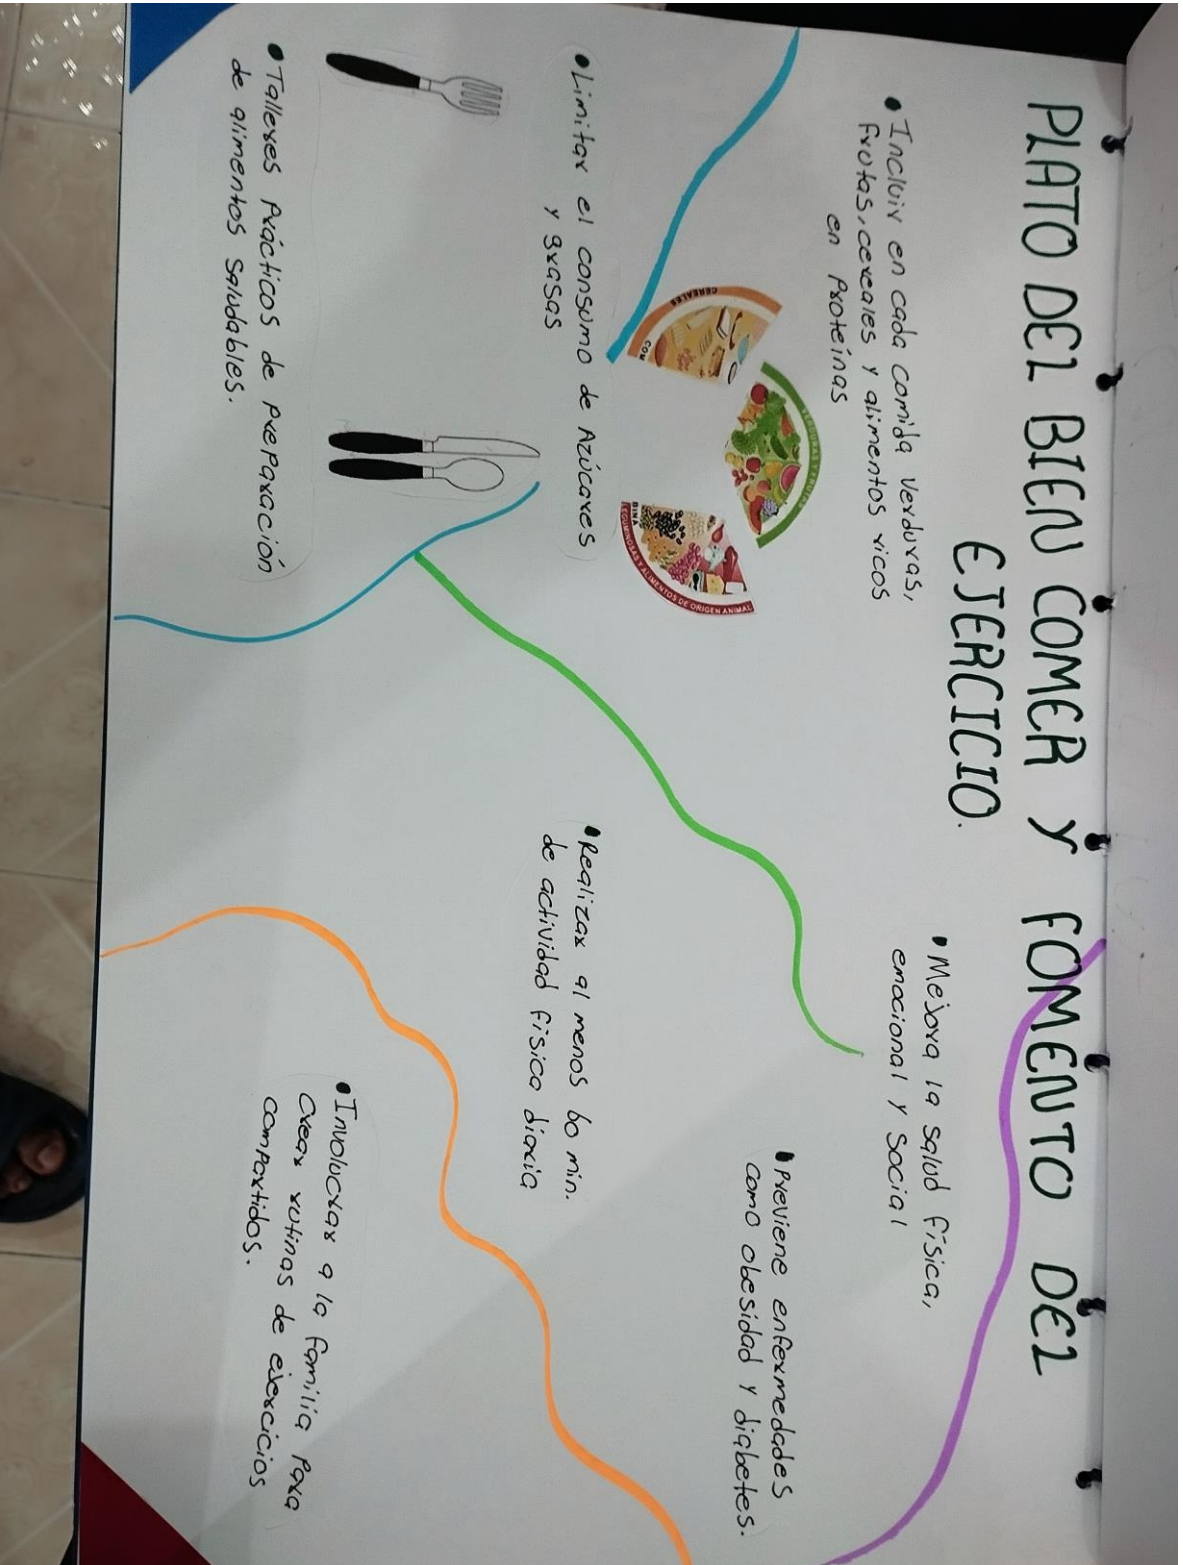 PLATO DEL BIEN COMER Y FOMENTO DEL
EJERCICIO.
• Incluir en cada comida verduras,
frutas, cereales y alimentos ricos
en proteínas
CEREALES
COM
VERDURAS Y FRUTAS
BINA
LEGUMINOSAS Y ALIMENTOS DE ORIGEN ANIMAL
• Limitar el consumo de Azúcares
y grasas
• Talleres prácticos de preparación
de alimentos saludables.
• Mejora la salud física,
emocional y social
• Previene enfermedades
como obesidad y diabetes.
• Realizar al menos 60 min.
de actividad física diaria
• Involucrar a la familia para
crear rutinas de ejercicios
compartidos.